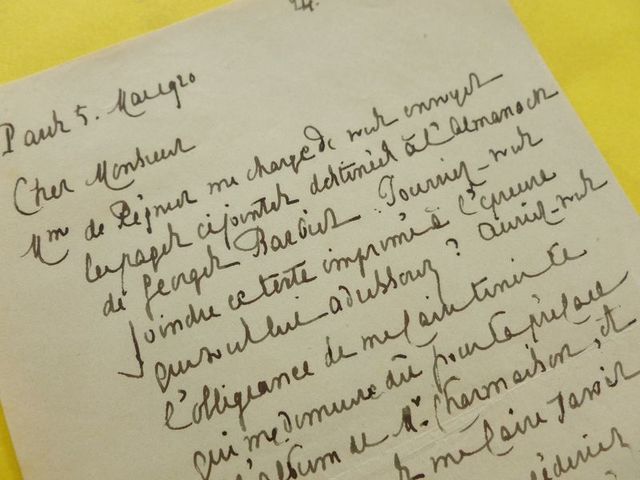 24.
Paris 5. Mars 1920
Cher Monsieur
Mme de Régnier me charge de vous envoyer
les pages ci jointes destinées à l'Almanach
de Georges Barbier. Pourriez-vous
joindre ce texte imprimé à l'épreuve
que vous lui adresserez? auriez-vous
l'obligeance de me faire tenir ce
qui me demeure dû pour la préface
l'album de Mr. Charmaison, et
me faire savoir